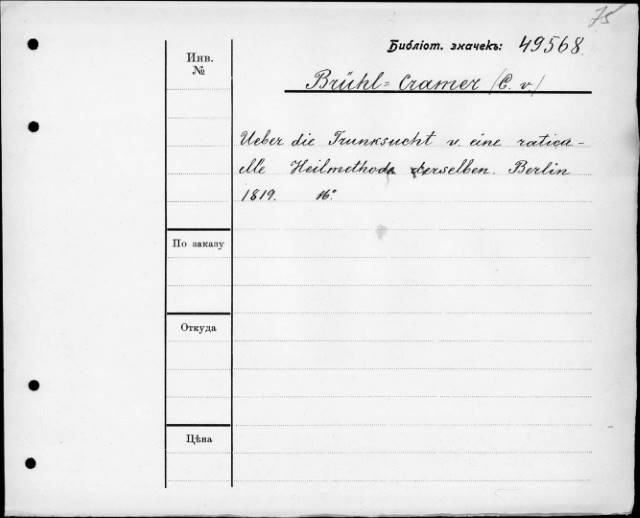 75
Библіот. значекъ: 49568.
Инв.
№
Brühl=Cramer (C. v.)
Ueber die Trunksucht v. eine ratica-
elle Heilmethode derselben. Berlin
1819. 16°
По заказу
Откуда
Цѣна